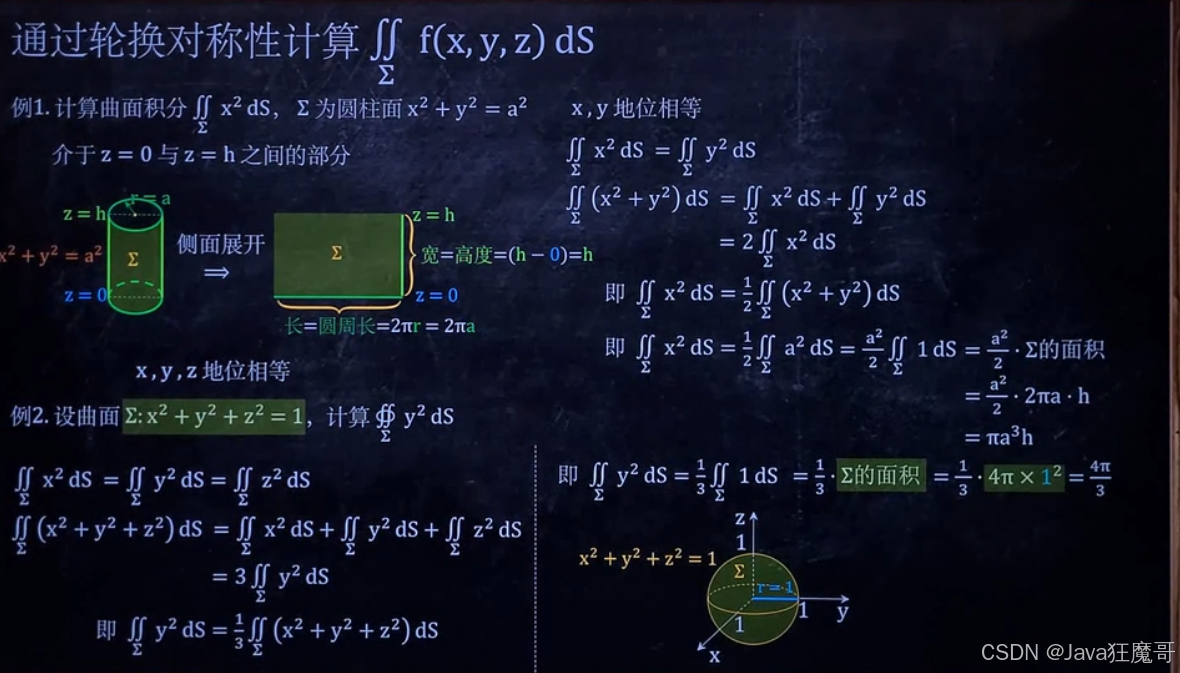 通过轮换对称性计算 ∬_Σ f(x, y, z) dS
例1. 计算曲面积分 ∬_Σ x² dS, Σ 为圆柱面 x² + y² = a²
介于 z = 0 与 z = h 之间的部分
r = a
z = h
x² + y² = a²
Σ
z = 0
侧面展开
⟹
Σ
z = h
宽=高度=(h − 0)=h
z = 0
长=圆周长=2πr = 2πa
x , y 地位相等
∬_Σ x² dS = ∬_Σ y² dS
∬_Σ (x² + y²) dS = ∬_Σ x² dS + ∬_Σ y² dS
= 2 ∬_Σ x² dS
即 ∬_Σ x² dS = 1/2 ∬_Σ (x² + y²) dS
即 ∬_Σ x² dS = 1/2 ∬_Σ a² dS = a²/2 ∬_Σ 1 dS = a²/2 · Σ的面积
= a²/2 · 2πa · h
= πa³h
x , y , z 地位相等
例2. 设曲面 Σ: x² + y² + z² = 1, 计算 ∯_Σ y² dS
∬_Σ x² dS = ∬_Σ y² dS = ∬_Σ z² dS
∬_Σ (x² + y² + z²) dS = ∬_Σ x² dS + ∬_Σ y² dS + ∬_Σ z² dS
= 3 ∬_Σ y² dS
即 ∬_Σ y² dS = 1/3 ∬_Σ (x² + y² + z²) dS
即 ∬_Σ y² dS = 1/3 ∬_Σ 1 dS = 1/3 · Σ的面积 = 1/3 · 4π × 1² = 4π/3
z
1
x² + y² + z² = 1
Σ
r = 1
1
y
1
x
CSDN @Java狂魔哥